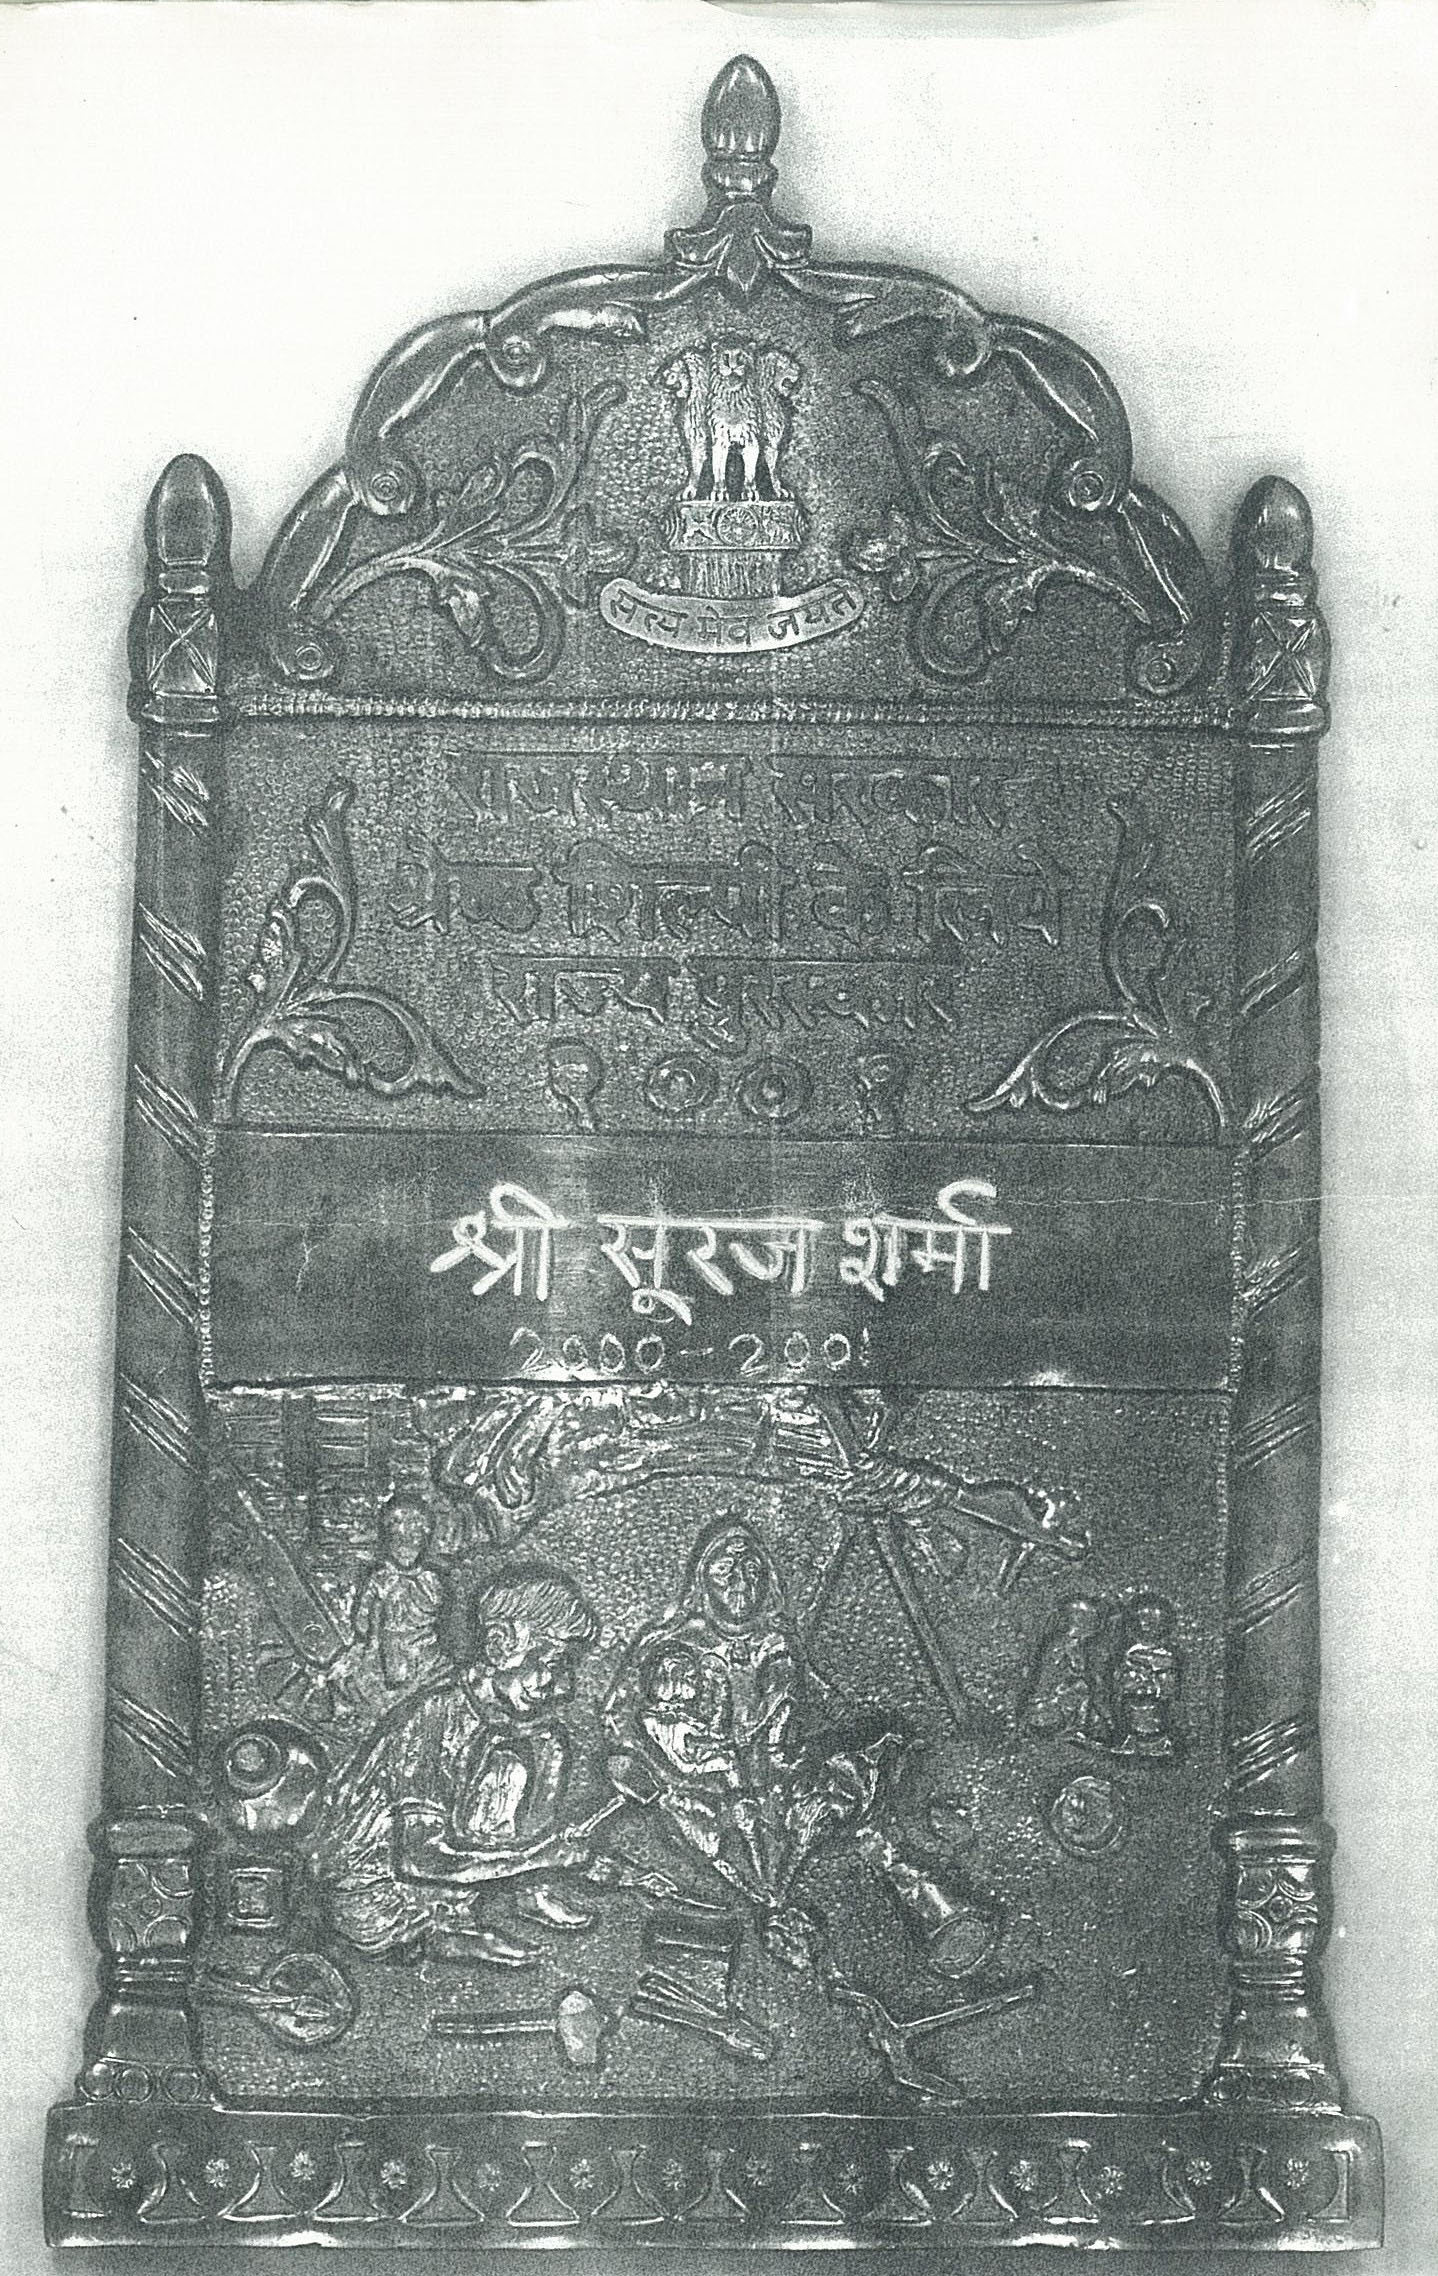 सत्य मेव जयते
राजस्थान सरकार
श्रेष्ठ शिल्पी के लिये
राज्य पुरस्कार
२००१
श्री सूरज शर्मा
2000-2001